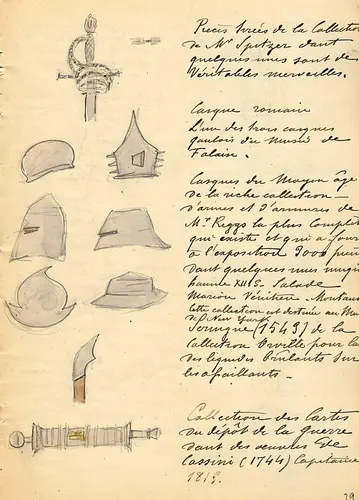 Pièces tirées de la Collection
de Mr Spitzer dont
quelques unes sont de
Véritables merveilles.
Casque romain
L'un des trois casques
gaulois du Musée de
Falaise.
Casques du Moyen âge
de la riche collection
d'armes et d'armures de
Mr Riggs la plus complète
qui existe et qui a fourni
à l'exposition 3000 pièces
dont quelques unes
heaume XIIIe. Salade
Marion Vénitien.
Cette collection est destinée au Mu
de New York
(1549) de la
Collection Orville pour la
des légendes brulants sur
les assaillants.
Collection des Cartes
du dépôt de la Guerre
dont des œuvres de
Cassini (1744) Capitaine
1815.